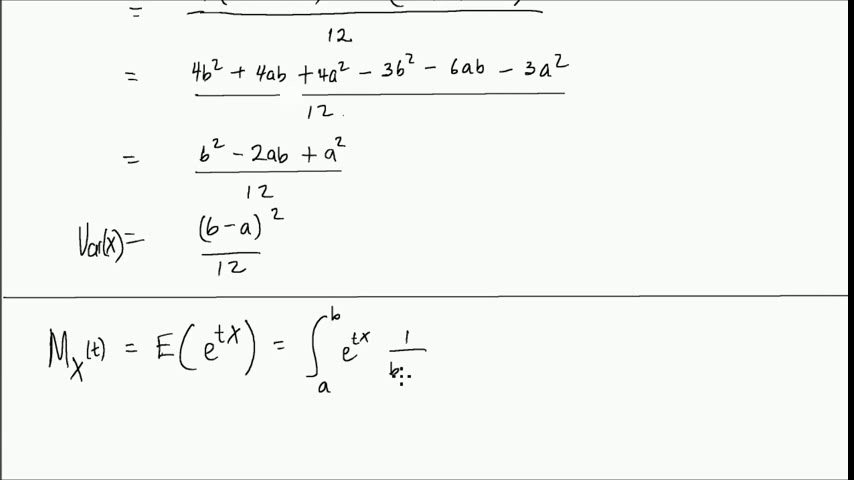 =
12
= 4b² + 4ab + 4a² - 3b² - 6ab - 3a²
12
= b² - 2ab + a²
12
Var(X) = (b-a)²
12
M_X(t) = E(e^{tX}) = ∫_a^b e^{tx} 1
b